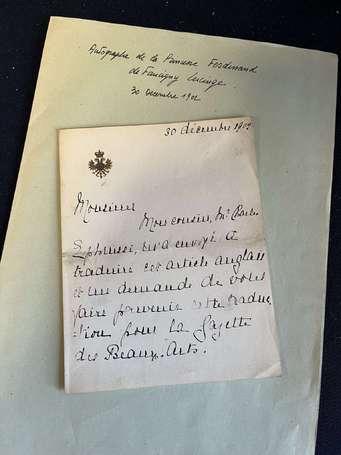 Autographe de la Princesse Ferdinand
de Faucigny Lucinge.
30 Décembre 1902
30 décembre 1902
Monsieur
Mon cousin, Mr Charles
Ephrussi, m'a envoyé à
traduire cet article anglais
et me demande de vous
faire parvenir cette traduc
tion pour la Gazette
des Beaux-Arts.